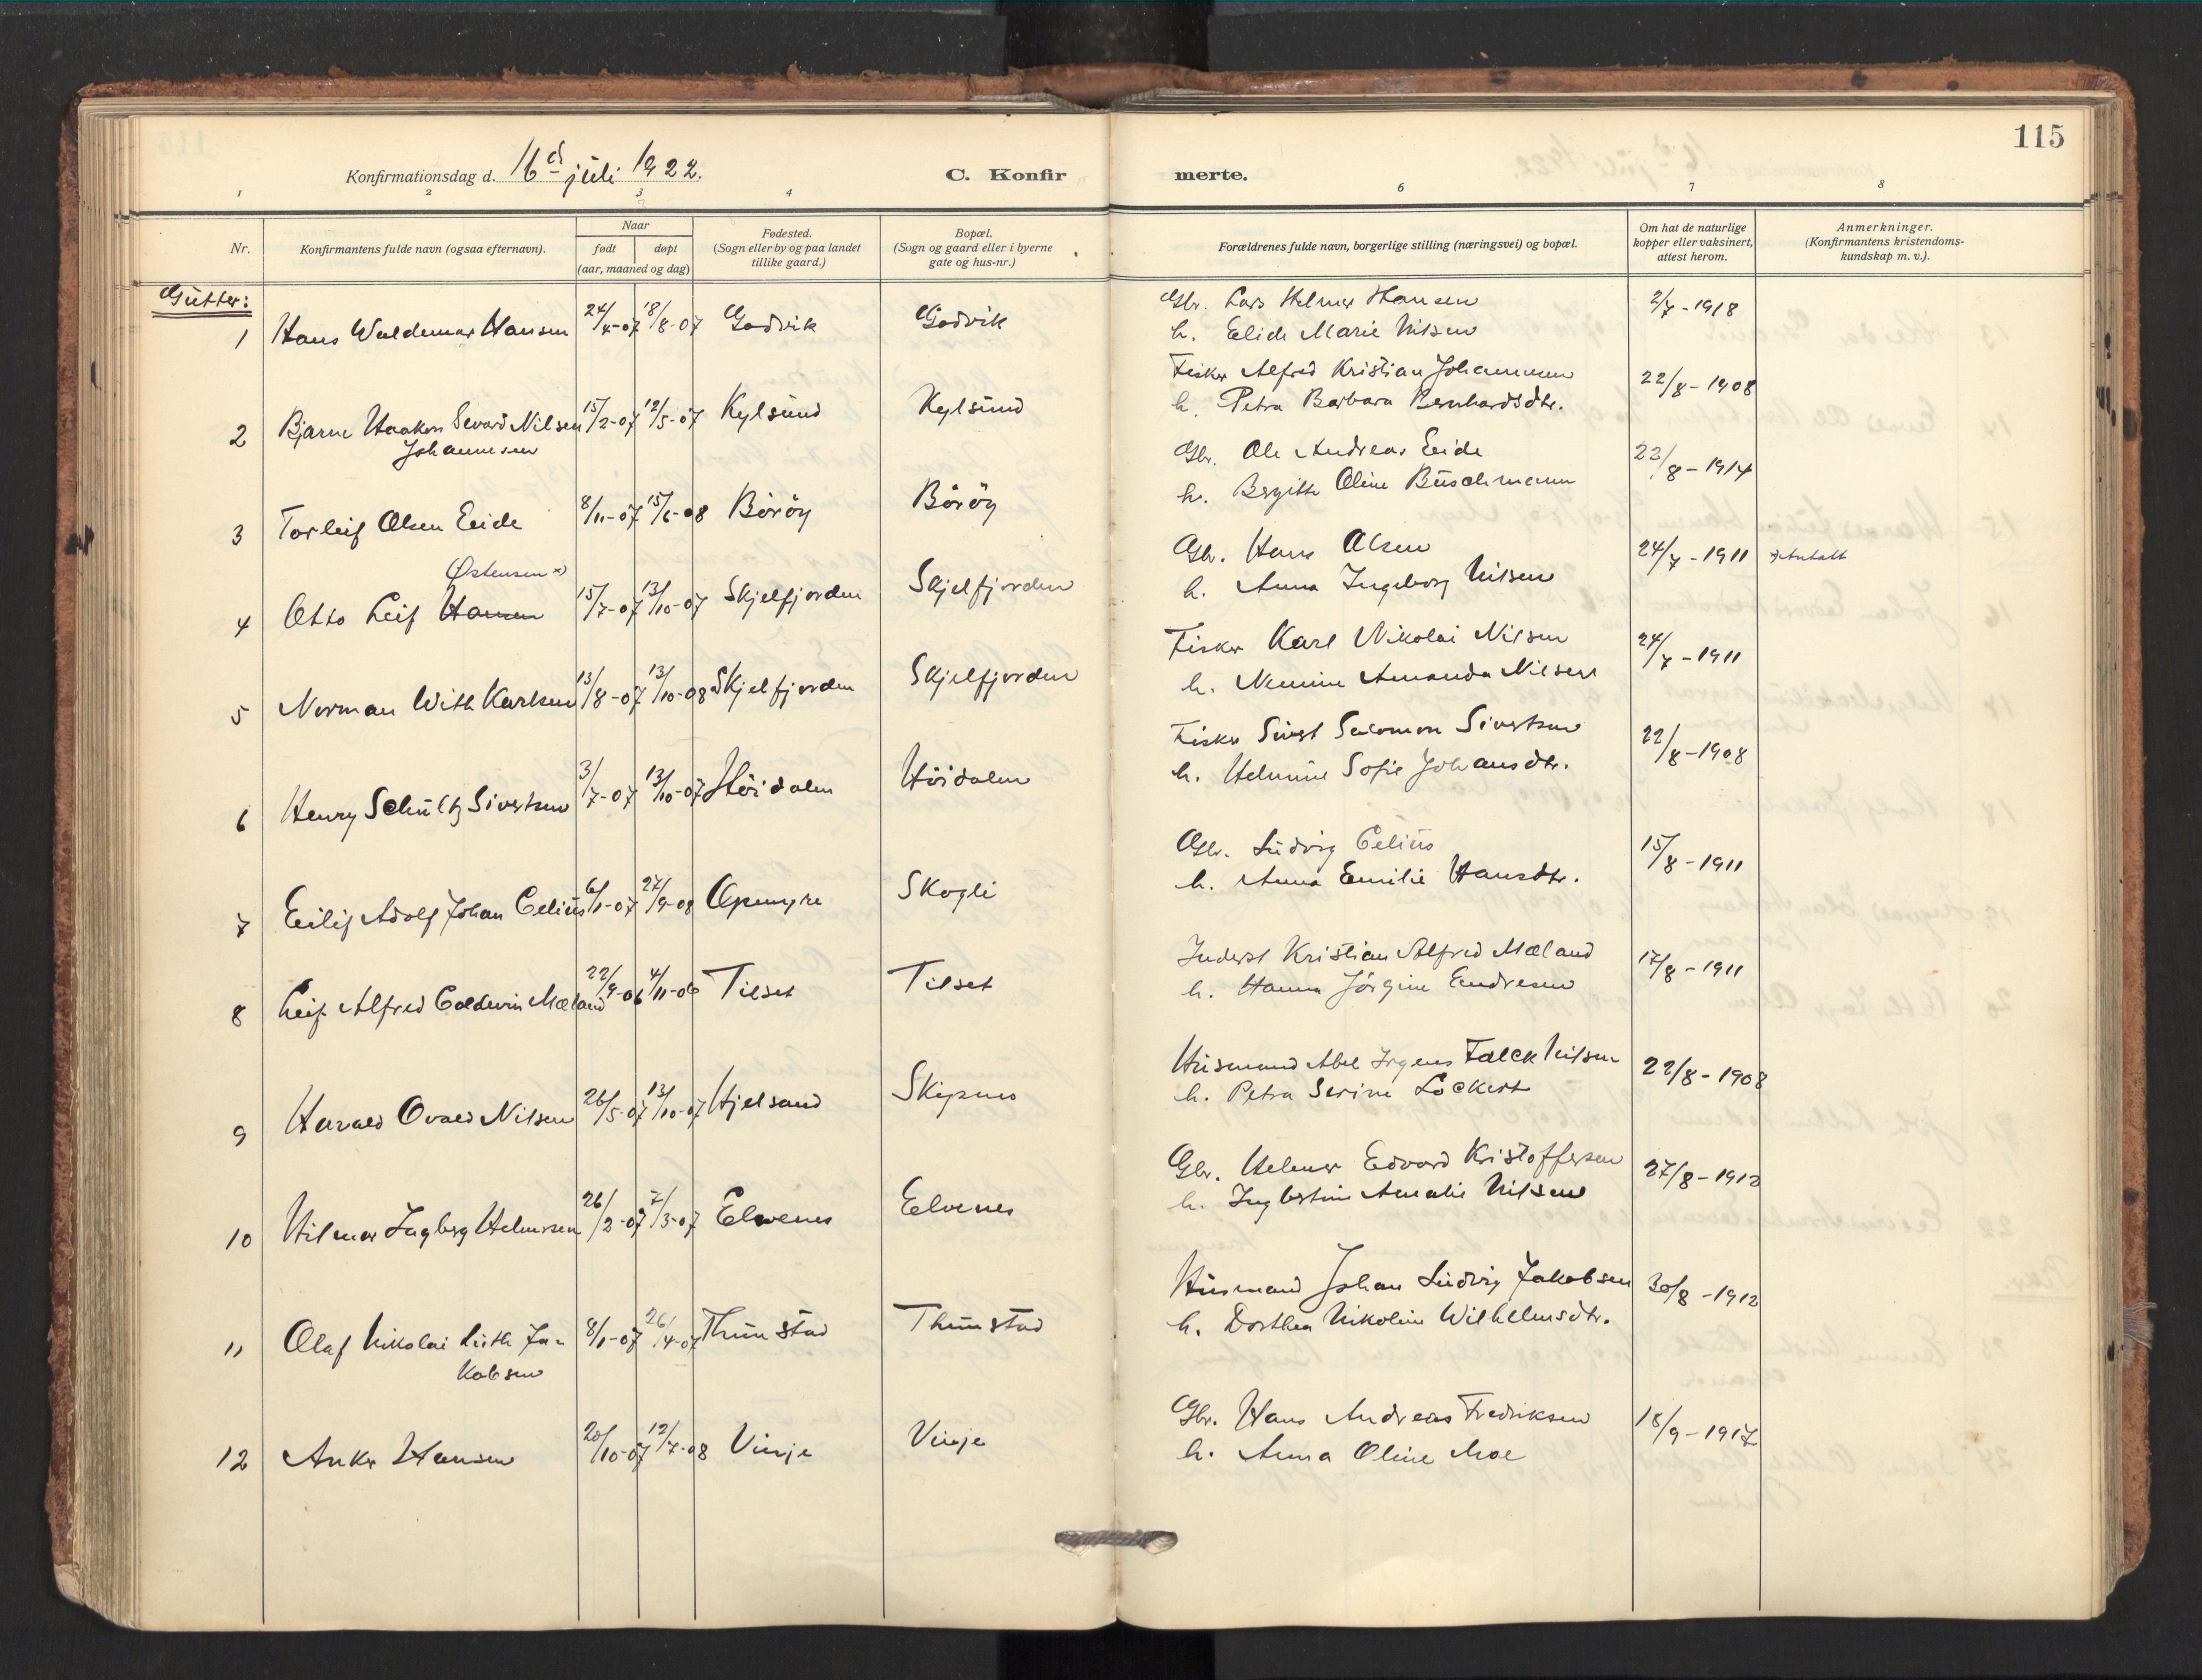 115
Konfirmationsdag d. 16d juli 1922.
C. Konfirmerte.
1 2 3 4 6 7 8
Nr.
Konfirmantens fulde navn (ogsaa efternavn).
Naar
født
døpt
(aar, maaned og dag)
Fødested.
(Sogn eller by og paa landet
tillike gaard.)
Bopæl.
(Sogn og gaard eller i byerne
gate og hus-nr.)
Forældrenes fulde navn, borgerlige stilling (næringsvei) og bopæl.
Om hat de naturlige
kopper eller vaksinert,
attest herom.
Anmerkninger.
(Konfirmantens kristendoms-
kundskap m. v.).
Gutter:
1 Hans Waldemar Hansen 24/4-07 18/8-07 Godvik Godvik
Gbr. Lars Helmer Hansen
h. Elide Marie Nilsen
2/7-1918
2 Bjarne Haakon Sevard Nilsen 15/2-07 12/5-07 Kylsund Kylsund
Johannesen
Fisker Alfred Kristian Johannesen
h. Petra Barbara Bernhardsdtr.
22/8-1908
3 Torleif Olsen Eide 8/11-07 15/6-08 Böröy Böröy
Gbr. Ole Andreas Eide
h. Bergitte Oline Buschmann
22/8-1914
Østensen x)
4 Otto Leif Hansen 15/7-07 13/10-07 Skjelfjorden Skjelfjorden
Gbr. Hans Olsen
h. Anna Ingeborg Nilsen
24/7-1911
5 Norman With Karlsen 13/8-07 13/10-08 Skjelfjorden Skjelfjorden
Fisker Karl Nikolai Nilsen
h. Nemine Amanda Nilsen
24/7-1911
6 Henry Schultz Sivertsen 3/7-07 13/10-07 Höidalen Höidalen
Fisker Sivert Salomon Sivertsen
h. Helmine Sofie Johansdtr.
22/8-1908
7 Eilif Adolf Johan Celius 6/1-07 27/9-08 Opemyre Skogli
Gbr. Ludvig Celius
h. Anna Emilie Hansdtr.
15/8-1911
8 Leif Alfred Coldevin Mæland 22/9-06 4/11-06 Tilset Tilset
Inderst Kristian Alfred Mæland
h. Hanna Jörgine Endresen
17/8-1911
9 Harald Ovald Nilsen 26/5-07 13/10-07 Hjelsand Skipnes
Husmand Abel Irgens Falck Nilsen
h. Petra Serine Lockert
22/8-1908
10 Hilmar Ingberg Helmersen 26/2-07 7/3-07 Elvenes Elvenes
Gbr. Helmer Edvard Kristoffersen
h. Ingbertine Amalie Nilsen
27/8-1912
11 Olaf Nikolai Luth Ja- 8/1-07 26/4-07 Thunstad Thunstad
kobsen
Husmand Johan Ludvig Jakobsen
h. Dorthea Nikoline Wilhelmsdtr.
30/8-1912
12 Anker Hansen 20/10-07 12/7-08 Vinje Vinje
Gbr. Hans Andreas Fredriksen
h. Anna Oline Moe
18/9-1917